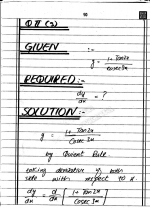 Q # (3)
GIVEN :-
y = 1+ Tan2x / Cosec3x
REQUIRED :-
dy/dx = ?
SOLUTION :-
y = 1+ Tan2x / Cosec 3x
by Quoient Rule.
taking derivative of both
side with respect to x.
dy/dx = d/dx [ 1+ Tan 2x / Cosec 3x ]